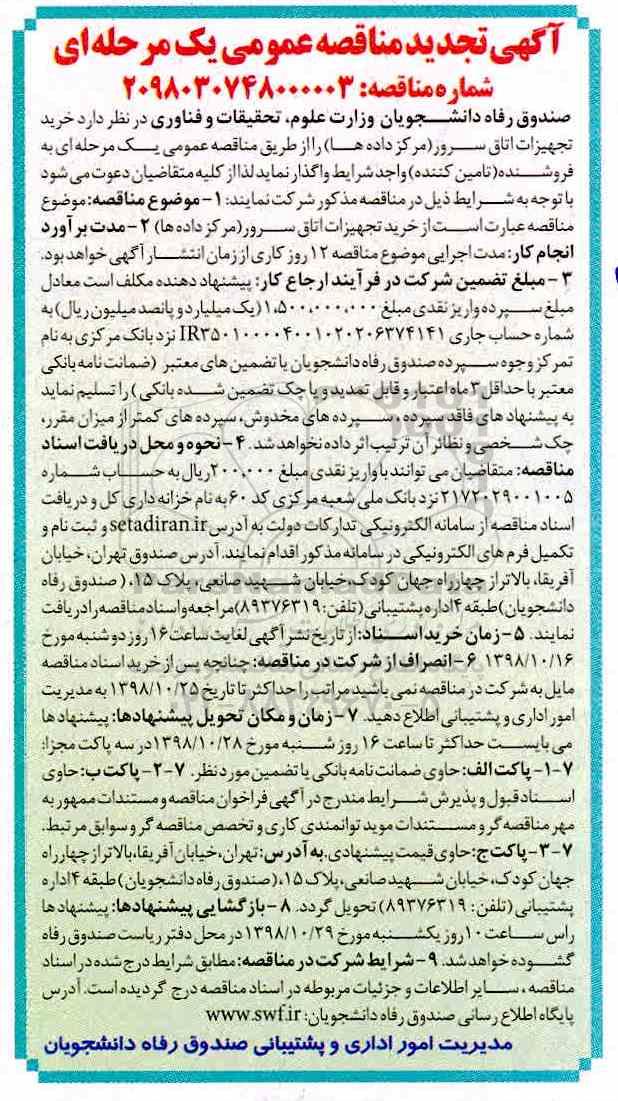 آگهی تجدید مناقصه عمومی یک مرحله‌ای
شماره مناقصه: ۲۰۹۸۰۳۰۷۴۸۰۰۰۰۰۳
صندوق رفاه دانشجویان وزارت علوم، تحقیقات و فناوری در نظر دارد خرید
تجهیزات اتاق سرور (مرکز داده ها) را از طریق مناقصه عمومی یک مرحله ای به
فروشنده (تامین کننده) واجد شرایط واگذار نماید لذا از کلیه متقاضیان دعوت می شود
با توجه به شرایط ذیل در مناقصه مذکور شرکت نمایند: ۱- موضوع مناقصه: موضوع
مناقصه عبارت است از خرید تجهیزات اتاق سرور (مرکز داده ها) ۲- مدت برآورد
انجام کار: مدت اجرایی موضوع مناقصه ۱۲ روز کاری از زمان انتشار آگهی خواهد بود.
۳- مبلغ تضمین شرکت در فرآیند ارجاع کار: پیشنهاد دهنده مکلف است معادل
مبلغ سپرده واریز نقدی مبلغ ۱,۵۰۰,۰۰۰,۰۰۰ (یک میلیارد و پانصد میلیون ریال) به
شماره حساب جاری IR۳۵۰۱۰۰۰۰۴۰۰۱۰۲۰۲۰۶۳۷۴۱۴۱ نزد بانک مرکزی به نام
تمرکز وجوه سپرده صندوق رفاه دانشجویان یا تضمین های معتبر (ضمانت نامه بانکی
معتبر با حداقل ۳ ماه اعتبار و قابل تمدید و یا چک تضمین شده بانکی) را تسلیم نماید
به پیشنهاد های فاقد سپرده، سپرده های مخدوش، سپرده های کمتر از میزان مقرر،
چک شخصی و نظائر آن ترتیب اثر داده نخواهد شد. ۴- نحوه و محل دریافت اسناد
مناقصه: متقاضیان می توانند با واریز نقدی مبلغ ۲۰۰,۰۰۰ ریال به حساب شماره
۲۱۷۲۰۲۹۰۰۱۰۰۵ نزد بانک ملی شعبه مرکزی کد ۶۰ به نام خزانه داری کل و دریافت
اسناد مناقصه از سامانه الکترونیکی تدارکات دولت به آدرس setadiran.ir و ثبت نام و
تکمیل فرم های الکترونیکی در سامانه مذکور اقدام نمایند. آدرس صندوق تهران، خیابان
آفریقا، بالاتر از چهارراه جهان کودک، خیابان شهید صانعی، پلاک ۱۵، (صندوق رفاه
دانشجویان) طبقه ۴ اداره پشتیبانی (تلفن: ۸۹۳۷۶۳۱۹) مراجعه و اسناد مناقصه را دریافت
نمایند. ۵- زمان خرید اسناد: از تاریخ نشر آگهی لغایت ساعت ۱۶ روز دوشنبه مورخ
۱۳۹۸/۱۰/۱۶ ۶- انصراف از شرکت در مناقصه: چنانچه پس از خرید اسناد مناقصه
مایل به شرکت در مناقصه نمی باشید مراتب را حداکثر تا تاریخ ۱۳۹۸/۱۰/۲۵ به مدیریت
امور اداری و پشتیبانی اطلاع دهید. ۷- زمان و مکان تحویل پیشنهادها: پیشنهاد ها
می بایست حداکثر تا ساعت ۱۶ روز شنبه مورخ ۱۳۹۸/۱۰/۲۸ در سه پاکت مجزا:
۷-۱- پاکت الف: حاوی ضمانت نامه بانکی یا تضمین مورد نظر. ۷-۲- پاکت ب: حاوی
اسناد قبول و پذیرش شرایط مندرج در آگهی فراخوان مناقصه و مستندات ممهور به
مهر مناقصه گر و مستندات موید توانمندی کاری و تخصص مناقصه گر و سوابق مرتبط.
۷-۳- پاکت ج: حاوی قیمت پیشنهادی. به آدرس: تهران، خیابان آفریقا، بالاتر از چهارراه
جهان کودک، خیابان شهید صانعی، پلاک ۱۵، (صندوق رفاه دانشجویان) طبقه ۴ اداره
پشتیبانی (تلفن: ۸۹۳۷۶۳۱۹) تحویل گردد. ۸- بازگشایی پیشنهادها: پیشنهاد ها
راس ساعت ۱۰ روز یکشنبه مورخ ۱۳۹۸/۱۰/۲۹ در محل دفتر ریاست صندوق رفاه
گشوده خواهد شد. ۹- شرایط شرکت در مناقصه: مطابق شرایط درج شده در اسناد
مناقصه، سایر اطلاعات و جزئیات مربوطه در اسناد مناقصه درج گردیده است. آدرس
پایگاه اطلاع رسانی صندوق رفاه دانشجویان: www.swf.ir
مدیریت امور اداری و پشتیبانی صندوق رفاه دانشجویان